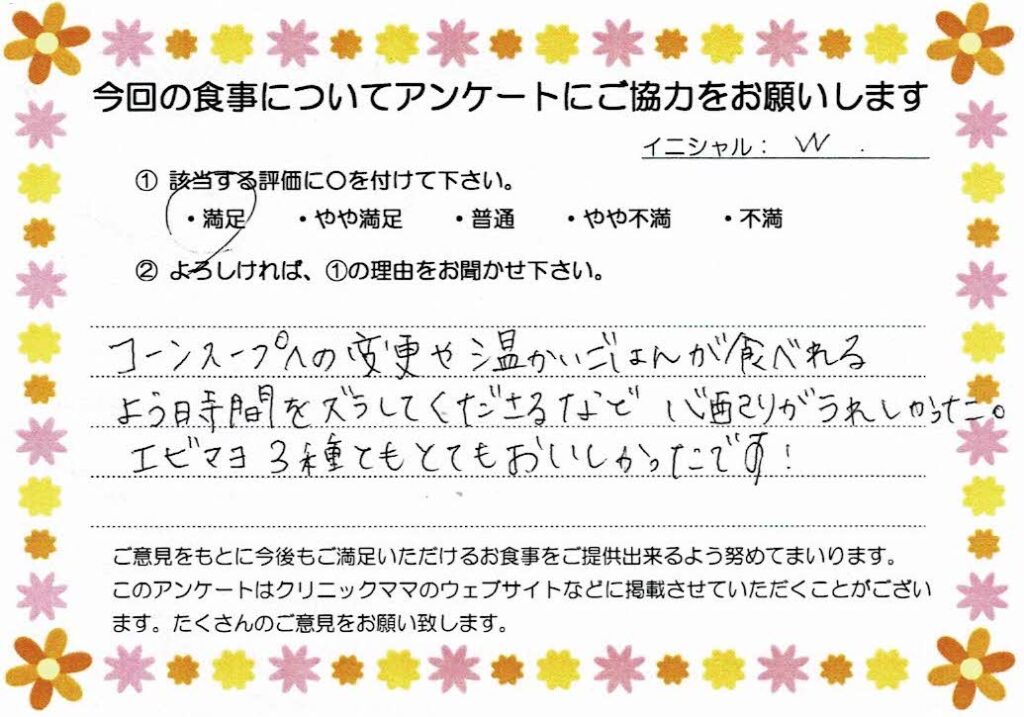 今回の食事についてアンケートにご協力をお願いします
イニシャル： W .
① 該当する評価に〇を付けて下さい。
・満足 ・やや満足 ・普通 ・やや不満 ・不満
② よろしければ、①の理由をお聞かせ下さい。
コーンスープへの変更や温かいごはんが食べれる
よう時間をズラしてくださるなど 心配りがうれしかったこ。
エビマヨ 3種ともとてもおいしかったです！
ご意見をもとに今後もご満足いただけるお食事をご提供出来るよう努めてまいります。
このアンケートはクリニックママのウェブサイトなどに掲載させていただくことがござい
ます。たくさんのご意見をお願い致します。